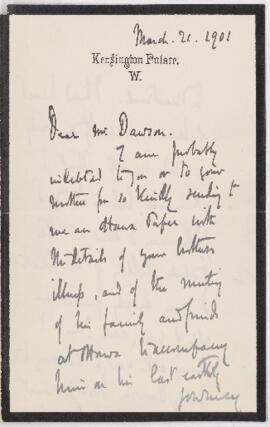 March. 21. 1901
Kensington Palace.
W.
Dear Mr Dawson.
I am probably
indebted to you or to your
mother for so kindly sending to
me an Ottawa Paper with
the details of your brothers
illness, and of the meeting
of his family and friends
at Ottawa to accompany
him on his last earthly
journey